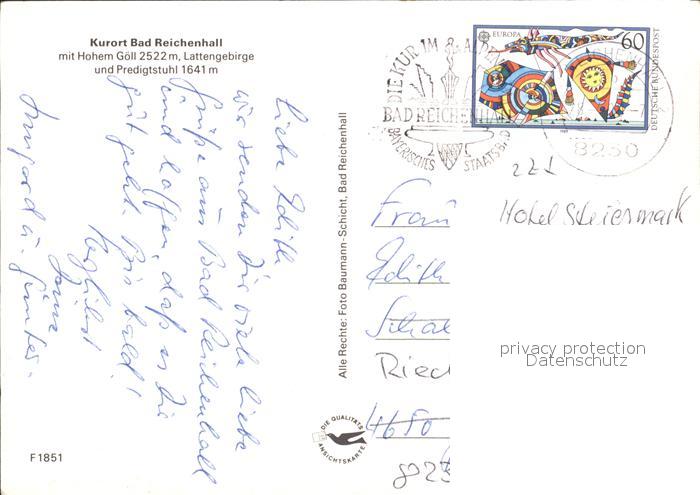 Kurort Bad Reichenhall
mit Hohem Göll 2522 m, Lattengebirge
und Predigtstuhl 1641 m
Liebe Edith
wir senden Dir viele liebe
Grüße aus Bad Reichenhall
und hoffen, daß es Dir
gut geht. Bis bald!
Herzlichst
Deine
Irmgard u. Günter.
F1851
Alle Rechte: Foto Baumann-Schicht, Bad Reichenhall
DIE QUALITÄTS
ANSICHTSKARTE
DIE KUR IM
BAD REICHENHALL
BAYERISCHES STAATSBAD
8230
EUROPA
60
DEUTSCHE BUNDESPOST
221
Hotel Steiermark
Frau
Edith
Ried
4680
privacy protection
Datenschutz